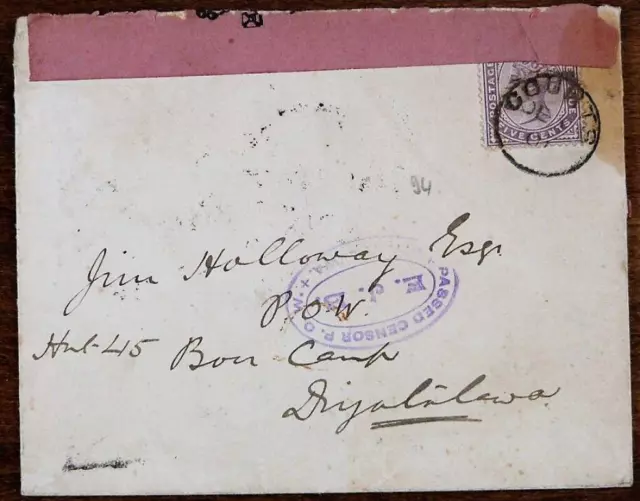 POSTAGE
FIVE CENTS
94
Jim Holloway Esqr
P.O.W.
Hut 45 Boer Camp
Diyatalawa
PASSED CENSOR P.O.W.